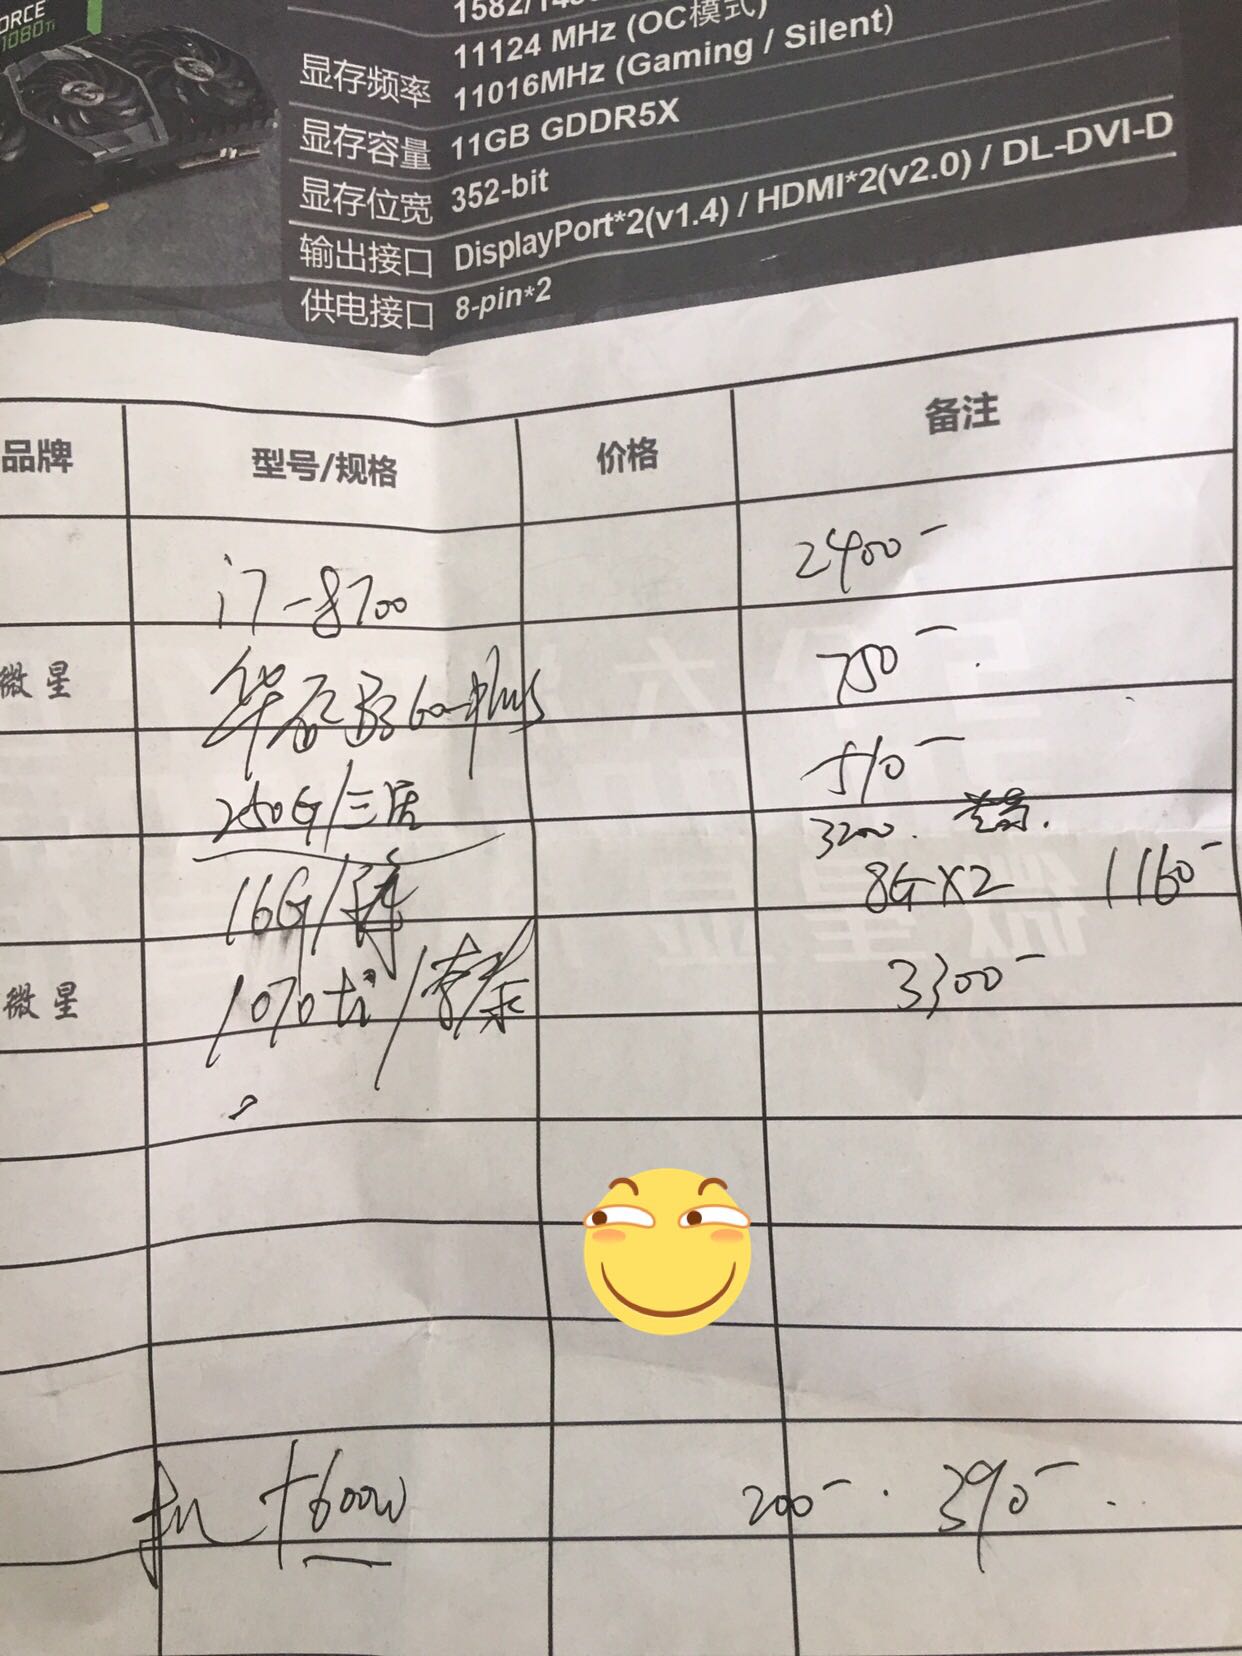 ORCE
1080Ti
1582/
显存频率 11124 MHz (OC模式)
11016MHz (Gaming / Silent)
显存容量 11GB GDDR5X
显存位宽 352-bit
输出接口 DisplayPort*2(v1.4) / HDMI*2(v2.0) / DL-DVI-D
供电接口 8-pin*2
品牌 型号/规格 价格 备注
i7-8700 2400-
微星 华硕B360-plus 750-
250G/三星 510-
3200.
16G/ 8G×2 1160-
微星 1070ti/ 3300-
+600w 200- 390-